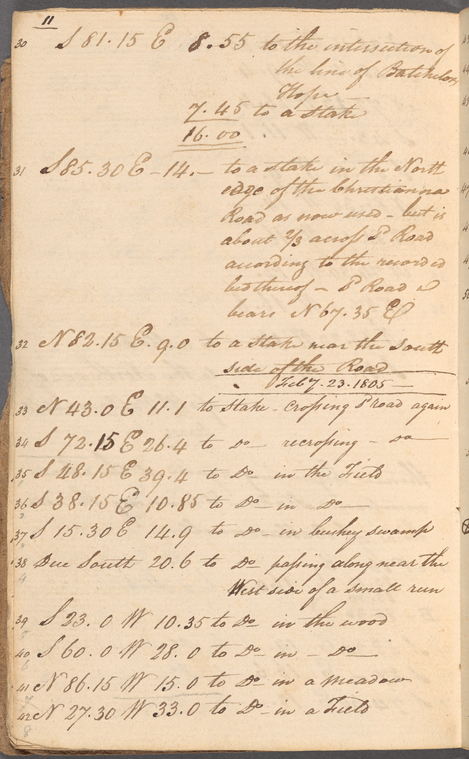 11
30 S 81.15 E 8.55 to the intersection of
the line of Batchelors
Hope —
7.45 to a Stake
16.00
31 S 85.30 E – 14.– to a stake in the North
edge of the Christianna
Road as now used – but is
about 2/3 across sd Road
according to the recorded
thereof – sd Road
bears N 67.35 E
32 N 82.15 E. 9.0 to a Stake near the South
side of the Road
Feby. 23. 1805 —
33 N 43.0 E 11.1 to Stake – crossing sd road again
34 S 72.15 E 26.4 to do recrossing – do
35 S 48.15 E 39.4 to Do in the Field
36 S 38.15 E 10.85 to Do – in – Do
37 S 15.30 E 14.9 to Do – in bushey swamp
38 Due South 20.6 to Do passing along near the
West side of a small run
39 S 23.0 W 10.35 to Do – in the wood
40 S 60.0 W 28.0 to Do – in – Do
41 N 86.15 W 15.0 to Do – in a meadow
42 N 27.30 W 33.0 to Do – in a Field